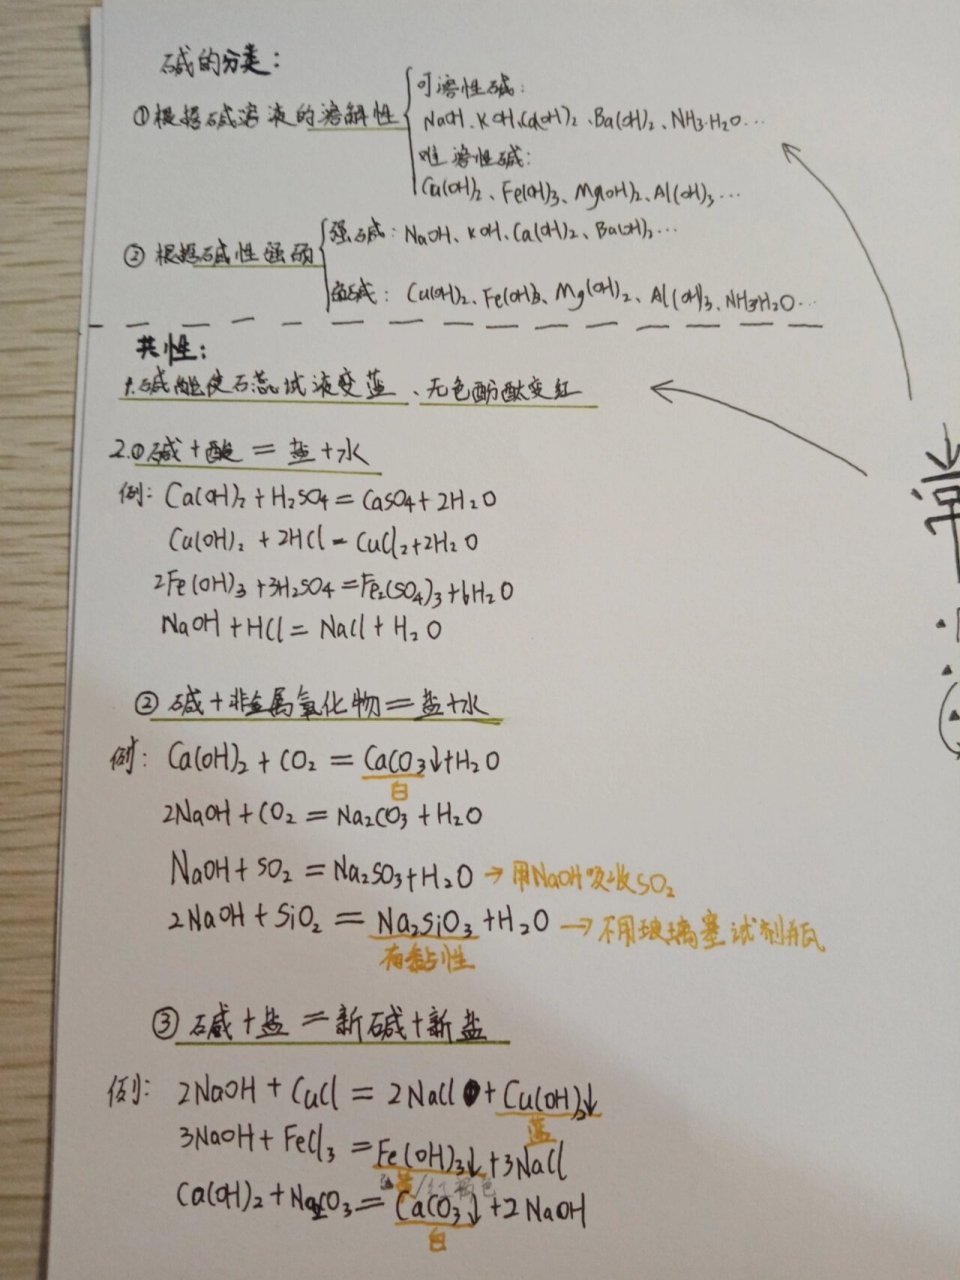 碱的分类：
①根据碱溶液的溶解性
可溶性碱：
NaOH、KOH、Ca(OH)2、Ba(OH)2、NH3·H2O…
难溶性碱：
Cu(OH)2、Fe(OH)3、Mg(OH)2、Al(OH)3…
②根据碱性强弱
强碱：NaOH、KOH、Ca(OH)2、Ba(OH)2…
弱碱：Cu(OH)2、Fe(OH)3、Mg(OH)2、Al(OH)3、NH3·H2O…
共性：
1.碱能使石蕊试液变蓝、无色酚酞变红
2.①碱+酸=盐+水
例：Ca(OH)2+H2SO4=CaSO4+2H2O
Cu(OH)2+2HCl=CuCl2+2H2O
2Fe(OH)3+3H2SO4=Fe2(SO4)3+6H2O
NaOH+HCl=NaCl+H2O
②碱+非金属氧化物=盐+水
例：Ca(OH)2+CO2=CaCO3↓+H2O
白
2NaOH+CO2=Na2CO3+H2O
NaOH+SO2=Na2SO3+H2O→用NaOH吸收SO2
2NaOH+SiO2=Na2SiO3+H2O→不用玻璃塞试剂瓶
有黏性
③碱+盐=新碱+新盐
例：2NaOH+CuCl=2NaCl+Cu(OH)2↓
蓝
3NaOH+FeCl3=Fe(OH)3↓+3NaCl
/红褐色
Ca(OH)2+Na2CO3=CaCO3↓+2NaOH
白
常